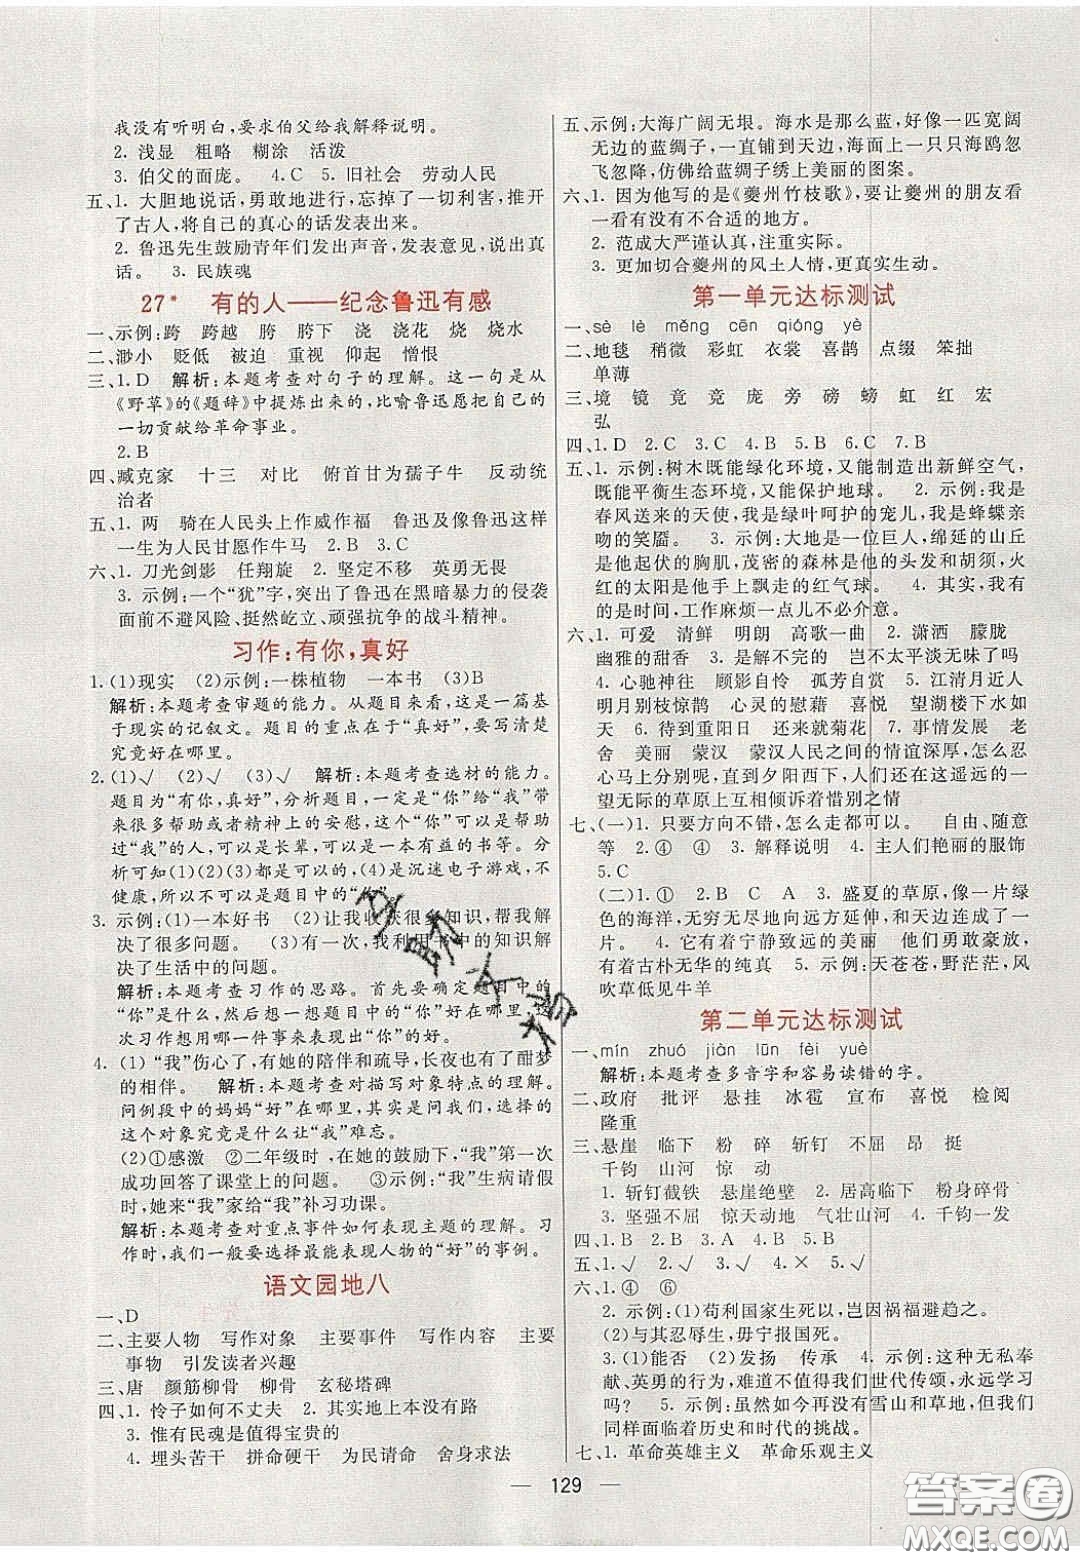 我没有听明白,要求伯父给我解释说明。
2. 浅显 粗略 糊涂 活泼
3. 伯父的面庞。 4.C 5.旧社会 劳动人民
五、1. 大胆地说话,勇敢地进行,忘掉了一切利害,推开了古人,将自己的真心的话发表出来。
2. 鲁迅先生鼓励青年们发出声音,发表意见,说出真
话。 3. 民族魂
27* 有的人——纪念鲁迅有感
一、示例:跨 跨越 胯 胯下 浇 浇花 烧 烧水
二、渺小 贬低 被迫 重视 仰起 憎恨
三、1.D 解析:本题考查对句子的理解。这一句是从
《野草》的《题辞》中提炼出来的,比喻鲁迅愿把自己的
一切贡献给革命事业。
2.B
四、臧克家 十三 对比 俯首甘为孺子牛 反动统
治者
五、1. 两 骑在人民头上作威作福 鲁迅及像鲁迅这样
一生为人民甘愿作牛马 2.B 3.C
六、1. 刀光剑影 任翔旋 2. 坚定不移 英勇无畏
3. 示例:一个“犹”字,突出了鲁迅在黑暗暴力的侵袭
面前不避风险、挺然屹立、顽强抗争的战斗精神。
习作:有你,真好
1. (1)现实 (2)示例:一株植物 一本书 (3)B
解析:本题考查审题的能力。从题目来看,这是一篇基
于现实的记叙文。题目的重点在“真好”,要写清楚
究竟好在哪里。
2. (1)√ (2)√ (3)√ 解析:本题考查选材的能力。
题目为“有你,真好”,分析题目,一定是“你”给“我”带
来很多帮助或者精神上的安慰,这个“你”可以是帮助
过“我”的人,可以是长辈,可以是一本有益的书等。分
析可知(1)(2)(3)都是可以的,(4)是沉迷电子游戏,不
健康,所以不可以是题目中的“你”。
3. 示例:(1)一本好书 (2)让我收获很多知识,帮我解
决了很多问题。 (3)有一次,我利用书中的知识解
决了生活中的问题。
解析:本题考查习作的思路。首先要确定题目中的
“你”是什么,然后想一想“你”好在哪里,以“你”为对象
习作想用哪一件事来表现出“你”的好。
4. (1)“我”伤心了,有她的陪伴和疏导,长夜也有了甜梦
的相伴。 解析:本题考查对描写对象特点的理解。
问例段中的妈妈“好”在哪里,就是问文段中的妈妈的
这个对象究竟是什么让“我”难忘。
(2)①感激 ②二年级时,在她的鼓励下,“我”第一次
成功回答了课堂上的问题。 ③示例:“我”生病请假
时,她来“我”家给“我”补习功课。
解析:本题考查对重点事件如何表现主题的理解。习
作时,我们一般要选择最能表现人物的“好”的事例。
语文园地八
一、D
二、主要人物 写作对象 主要事件 写作内容 主要
事物 引发读者兴趣
三、唐 颜筋柳骨 柳骨 玄秘塔碑
四、1. 怜子如何不丈夫 2. 其实地上本没有路
3. 惟有民魂是值得宝贵的
4. 埋头苦干 拼命硬干 为民请命 舍身求法
五、示例:大海广阔无垠。海水是那么蓝,好像一匹宽阔
无边的蓝绸子,一直铺到天边,海面上一只只海鸥忽
飞忽降,仿佛给蓝绸子绣上美丽的图案。
六、1. 因为他写的是《夔州竹枝歌》,要让夔州的朋友看
一看有没有不合适的地方。
2. 范成大严谨认真,注重实际。
3. 更加切合夔州的风土人情,更真实生动。
第一单元达标测试
一、sè lè měng cēn qióng yè
二、地毯 稍微 彩虹 衣裳 喜鹊 点缀 笨拙
单薄
三、境 镜 竟 竞 庞 旁 磅 螃 虹 红 宏
弘
四、1.D 2.C 3.C 4.B 5.B 6.C 7.B
五、1. 示例:树木既能绿化环境,又能制造出新鲜空气,
既能平衡生态环境,又能保护地球。 2. 示例:我是
春风送来的天使,我是绿叶呵护的宠儿,我是蜂蝶亲
吻的笑靥。 3. 示例:大地是一位巨人,绵延的山丘
是他起伏的胸肌,茂密的森林是他的头发和胡须,火
红的太阳是他手上飘走的红气球。 4. 其实,我有
的是时间,工作麻烦一点儿不必介意。
六、1. 可爱 清鲜 明朗 高歌一曲 2. 潇洒 朦胧
幽雅的甜香 3. 是解不完的 岂不太平淡无味了吗
4. 心驰神往 顾影自怜 孤芳自赏 5. 江清月近人
明月别枝惊鹊 心灵的慰藉 喜悦 望湖楼下水如
天 6. 待到重阳日 还来就菊花 7. 事情发展 老
舍 美丽 蒙汉 蒙汉人民之间的情谊深厚,怎么忍
心马上分别呢,直到夕阳西下,人们还在这遥远的一
望无际的草原上互相倾诉着惜别之情
七、(一)1. 只要方向不错,怎么走都可以。 自由、随意
等 2.④ ④ 3. 解释说明 4. 主人们艳丽的服饰
5.C
(二)1.① 2.B C A 3. 盛夏的草原,像一片绿
色的海洋,无穷无尽地向远方延伸,和天边连成了一
片。 4. 它有着宁静致远的美丽 他们勇敢豪放,
有着古朴无华的纯真 5. 示例:天苍苍,野茫茫,风
吹草低见牛羊
第二单元达标测试
一、mín zhuó jiàn lūn fèi yuè
解析:本题考查多音字和容易读错的字。
二、政府 批评 悬挂 冰雹 宣布 喜悦 检阅
隆重
三、悬崖 临下 粉 碎 斩钉 不屈 昂 挺
千钧 山河 惊 动
1. 斩钉截铁 悬崖绝壁 2. 居高临下 粉身碎骨
3. 坚强不屈 惊天动地 气壮山河 千钧一发
四、1.B 2.B 3.A 4.B 5.B
五、1.√ 2.√ 3.√ 4.× 5.√
六、1.④ ⑥
2. 示例:(1)苟利国家生死以,岂因祸福避趋之。
(2)与其忍辱生,毋宁报国死。
3.(1)能否 (2)发扬 传承 4. 示例:这种无私奉
献、英勇的行为,难道不值得我们世代传颂,永远学习
吗? 5. 示例:虽然如今再没有雪山和草地,但我们
同样面临着历史和时代的挑战。
七、1. 革命英雄主义 革命乐观主义
— 129 —
答案圈
MXQE.COM